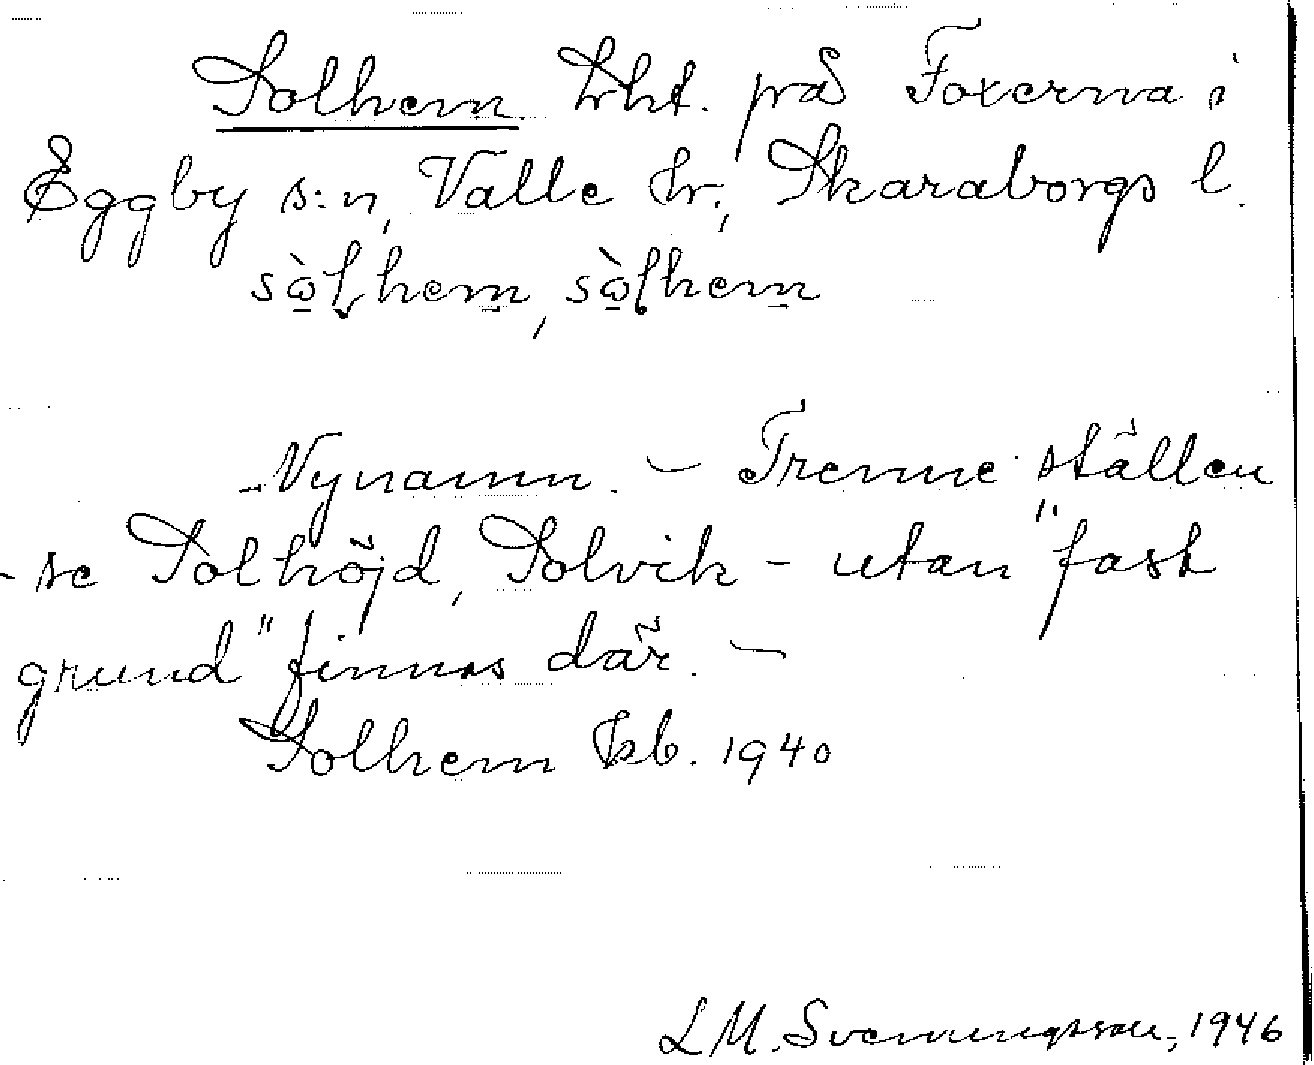 Solhem lht. på Foxerna i
Eggby s:n, Valle hr., Skaraborgs l.
sò̱lhem, sò̱lhem
Nynamn. – Trenne ställen
- se Solhöjd, Solvik - utan "fast
grund" finnas där. –
Solhem kb. 1940
L M. Svenungsson, 1946